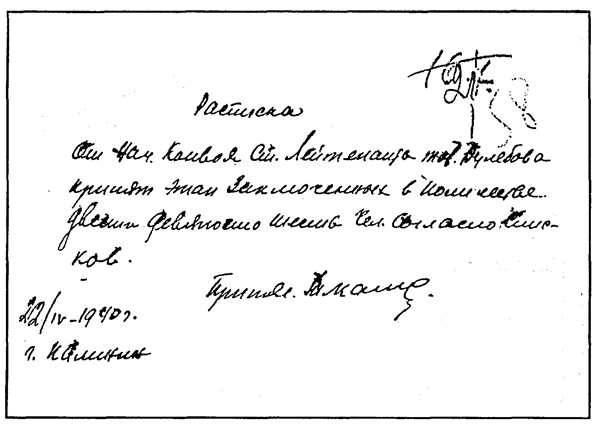 Расписка
От Нач. Конвоя Ст. Лейтенанта тов.
принят этап Заключенных в количестве
двести девяносто шесть Чел. согласно спис-
ков.
Принял.
22/IV-1940г.
г. Калинин